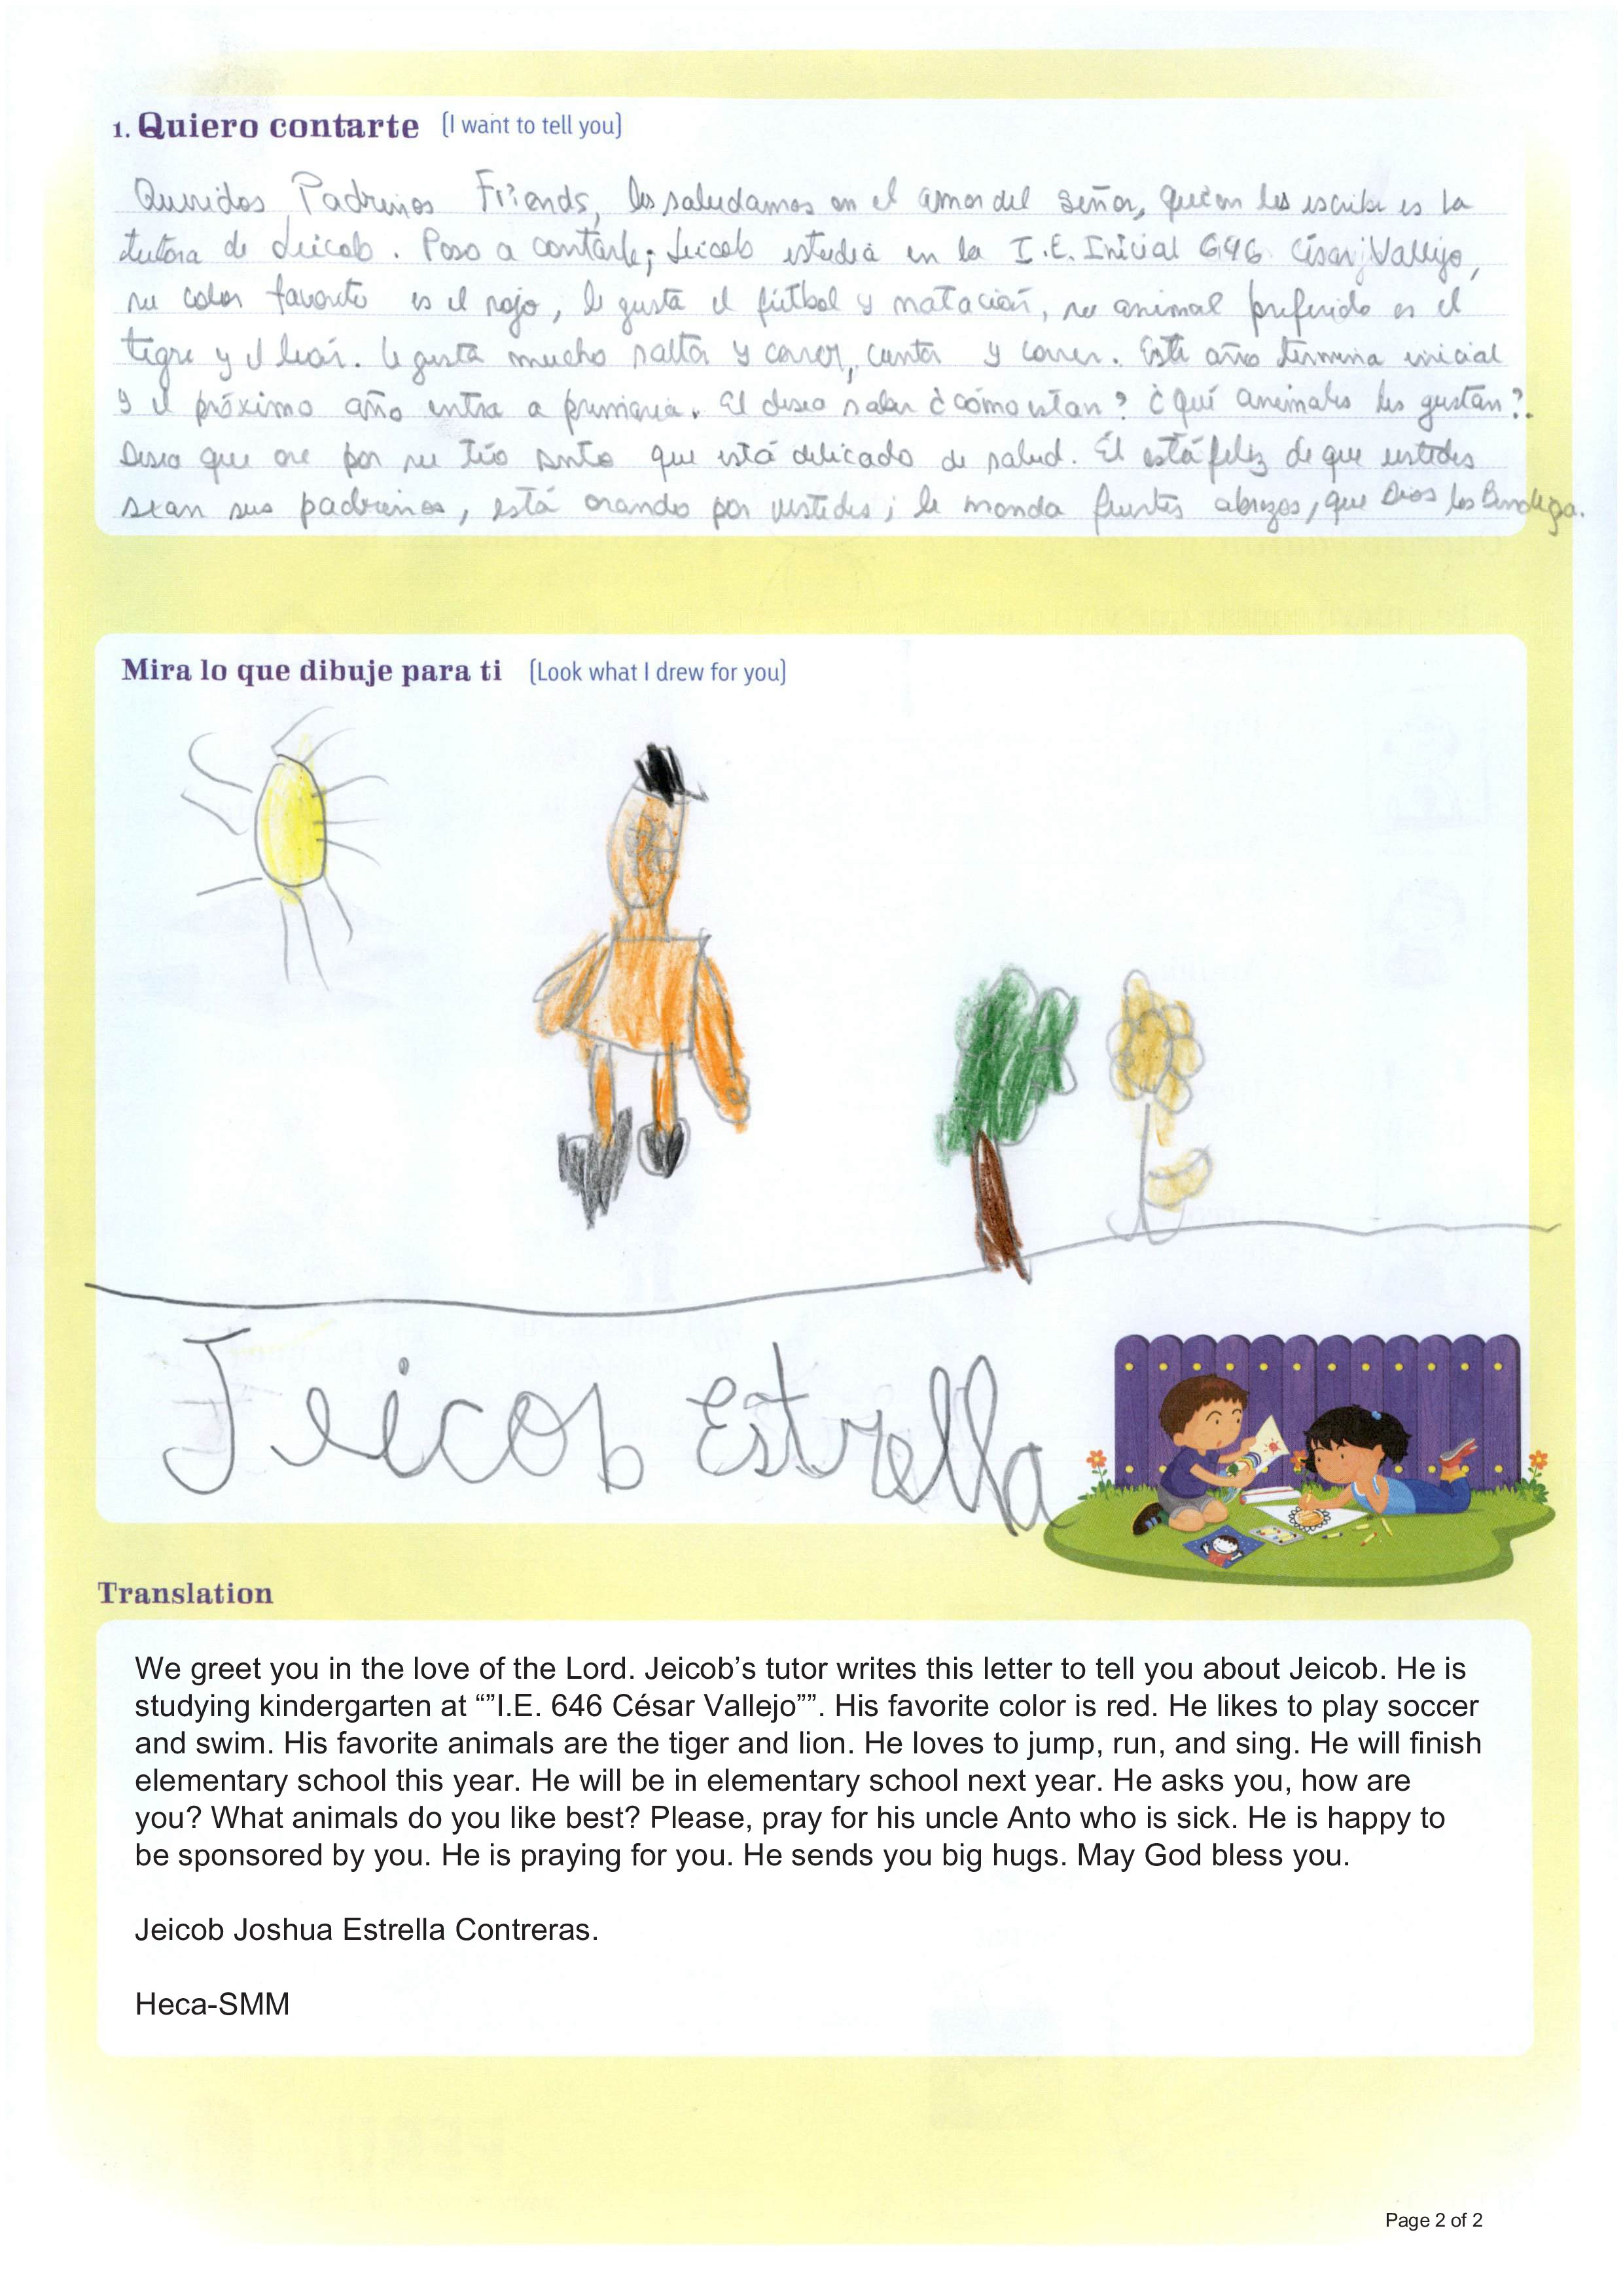 1. Quiero contarte (I want to tell you)
Queridos Padrinos Friends, les saludamos en el amor del Señor, quien les escribe es la
tutora de Jeicob. Paso a contarle; Jeicob estudia en la I.E. Inicial 646 César Vallejo,
su color favorito es el rojo, le gusta el fútbol y natación, su animal preferido es el
tigre y el león. Le gusta mucho saltar y correr, cantar y correr. Este año termina inicial
y el próximo año entra a primaria. El desea saber ¿cómo están? ¿Qué animales les gustan?.
Desea que ore por su tío que está delicado de salud. Él está feliz de que ustedes
sean sus padrinos, está orando por ustedes; le manda fuertes abrazos, que Dios los Bendiga.
Mira lo que dibuje para ti (Look what I drew for you)
Jeicob Estrella
Translation
We greet you in the love of the Lord. Jeicob’s tutor writes this letter to tell you about Jeicob. He is
studying kindergarten at “”I.E. 646 César Vallejo””. His favorite color is red. He likes to play soccer
and swim. His favorite animals are the tiger and lion. He loves to jump, run, and sing. He will finish
elementary school this year. He will be in elementary school next year. He asks you, how are
you? What animals do you like best? Please, pray for his uncle Anto who is sick. He is happy to
be sponsored by you. He is praying for you. He sends you big hugs. May God bless you.
Jeicob Joshua Estrella Contreras.
Heca-SMM
Page 2 of 2